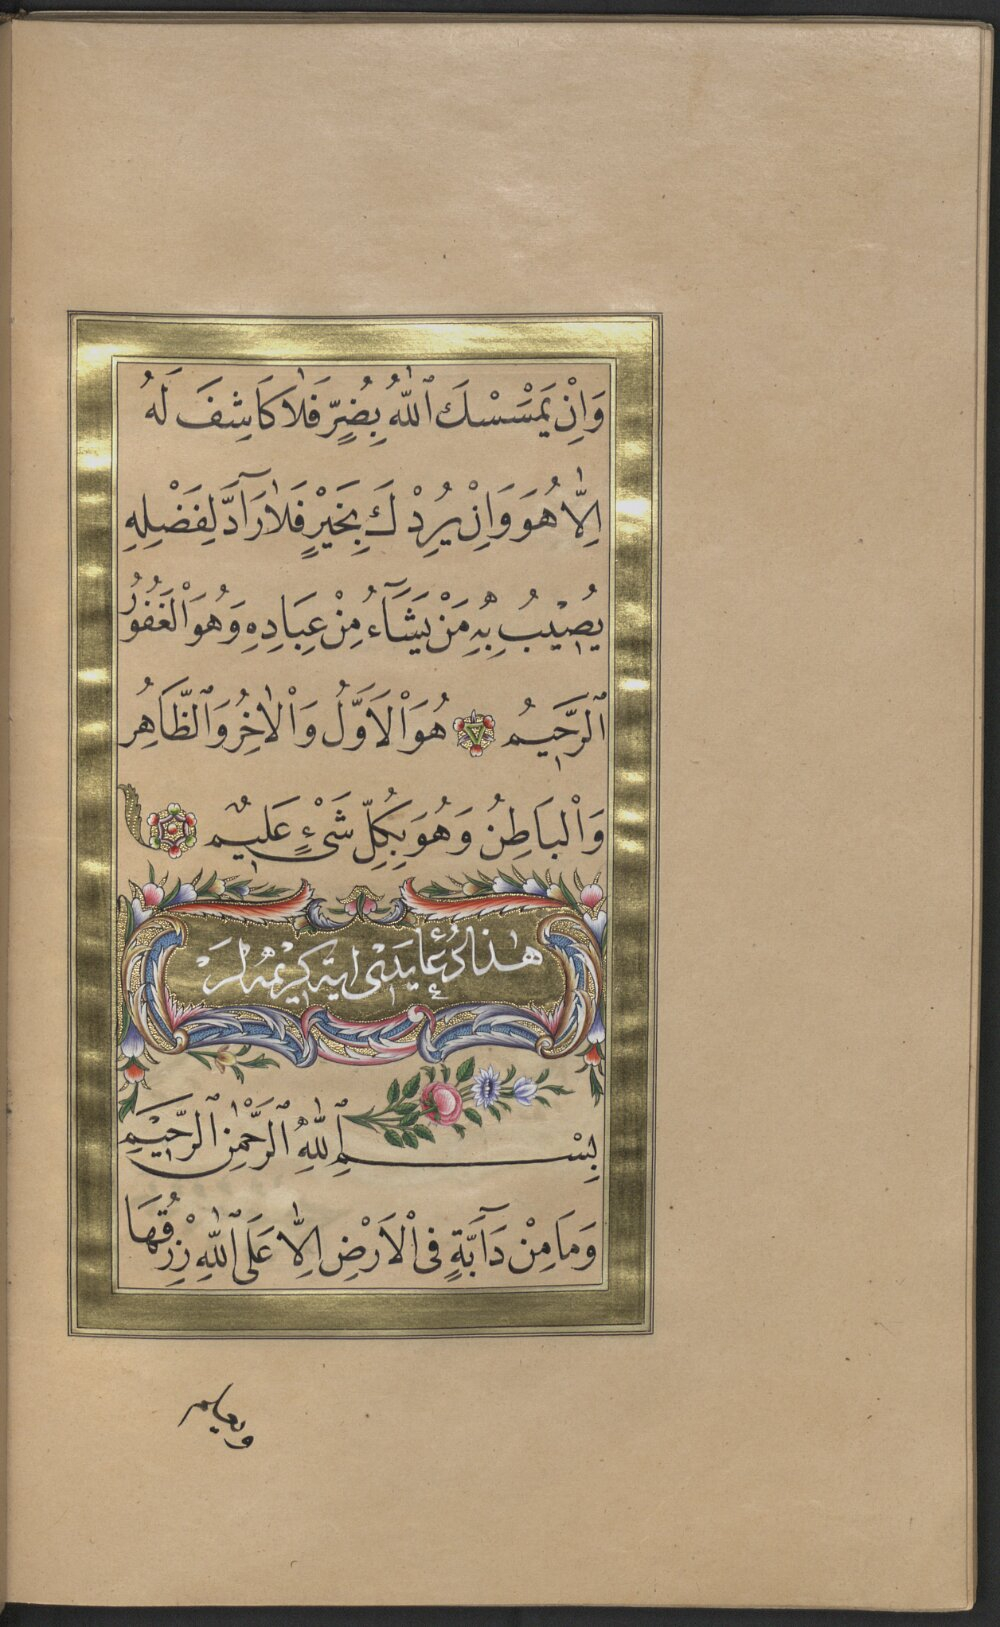 وَاِنْ يَمْسَسْكَ ٱللّٰهُ بِضُرٍّ فَلَا كَاشِفَ لَهُ
اِلَّا هُوَ وَاِنْ يُرِدْكَ بِخَيْرٍ فَلَا رَآدَّ لِفَضْلِهِ
يُصِيْبُ بِهِ مَنْ يَشَآءُ مِنْ عِبَادِهِ وَهُوَ الْغَفُوْرُ
ٱلرَّحِيْمُ هُوَ الْاَوَّلُ وَالْاٰخِرُ وَٱلظَّاهِرُ
وَالْبَاطِنُ وَهُوَ بِكُلِّ شَىْءٍ عَلِيْمٌ
هٰذَا دُعَا يَدِى اٰيَة كَرِيْمَه لَرْ
بِسْمِ ٱللّٰهِ ٱلرَّحْمٰنِ ٱلرَّحِيْمِ
وَمَا مِنْ دَآبَّةٍ فِى الْاَرْضِ اِلَّا عَلَى ٱللّٰهِ رِزْقُهَا
ويعلم